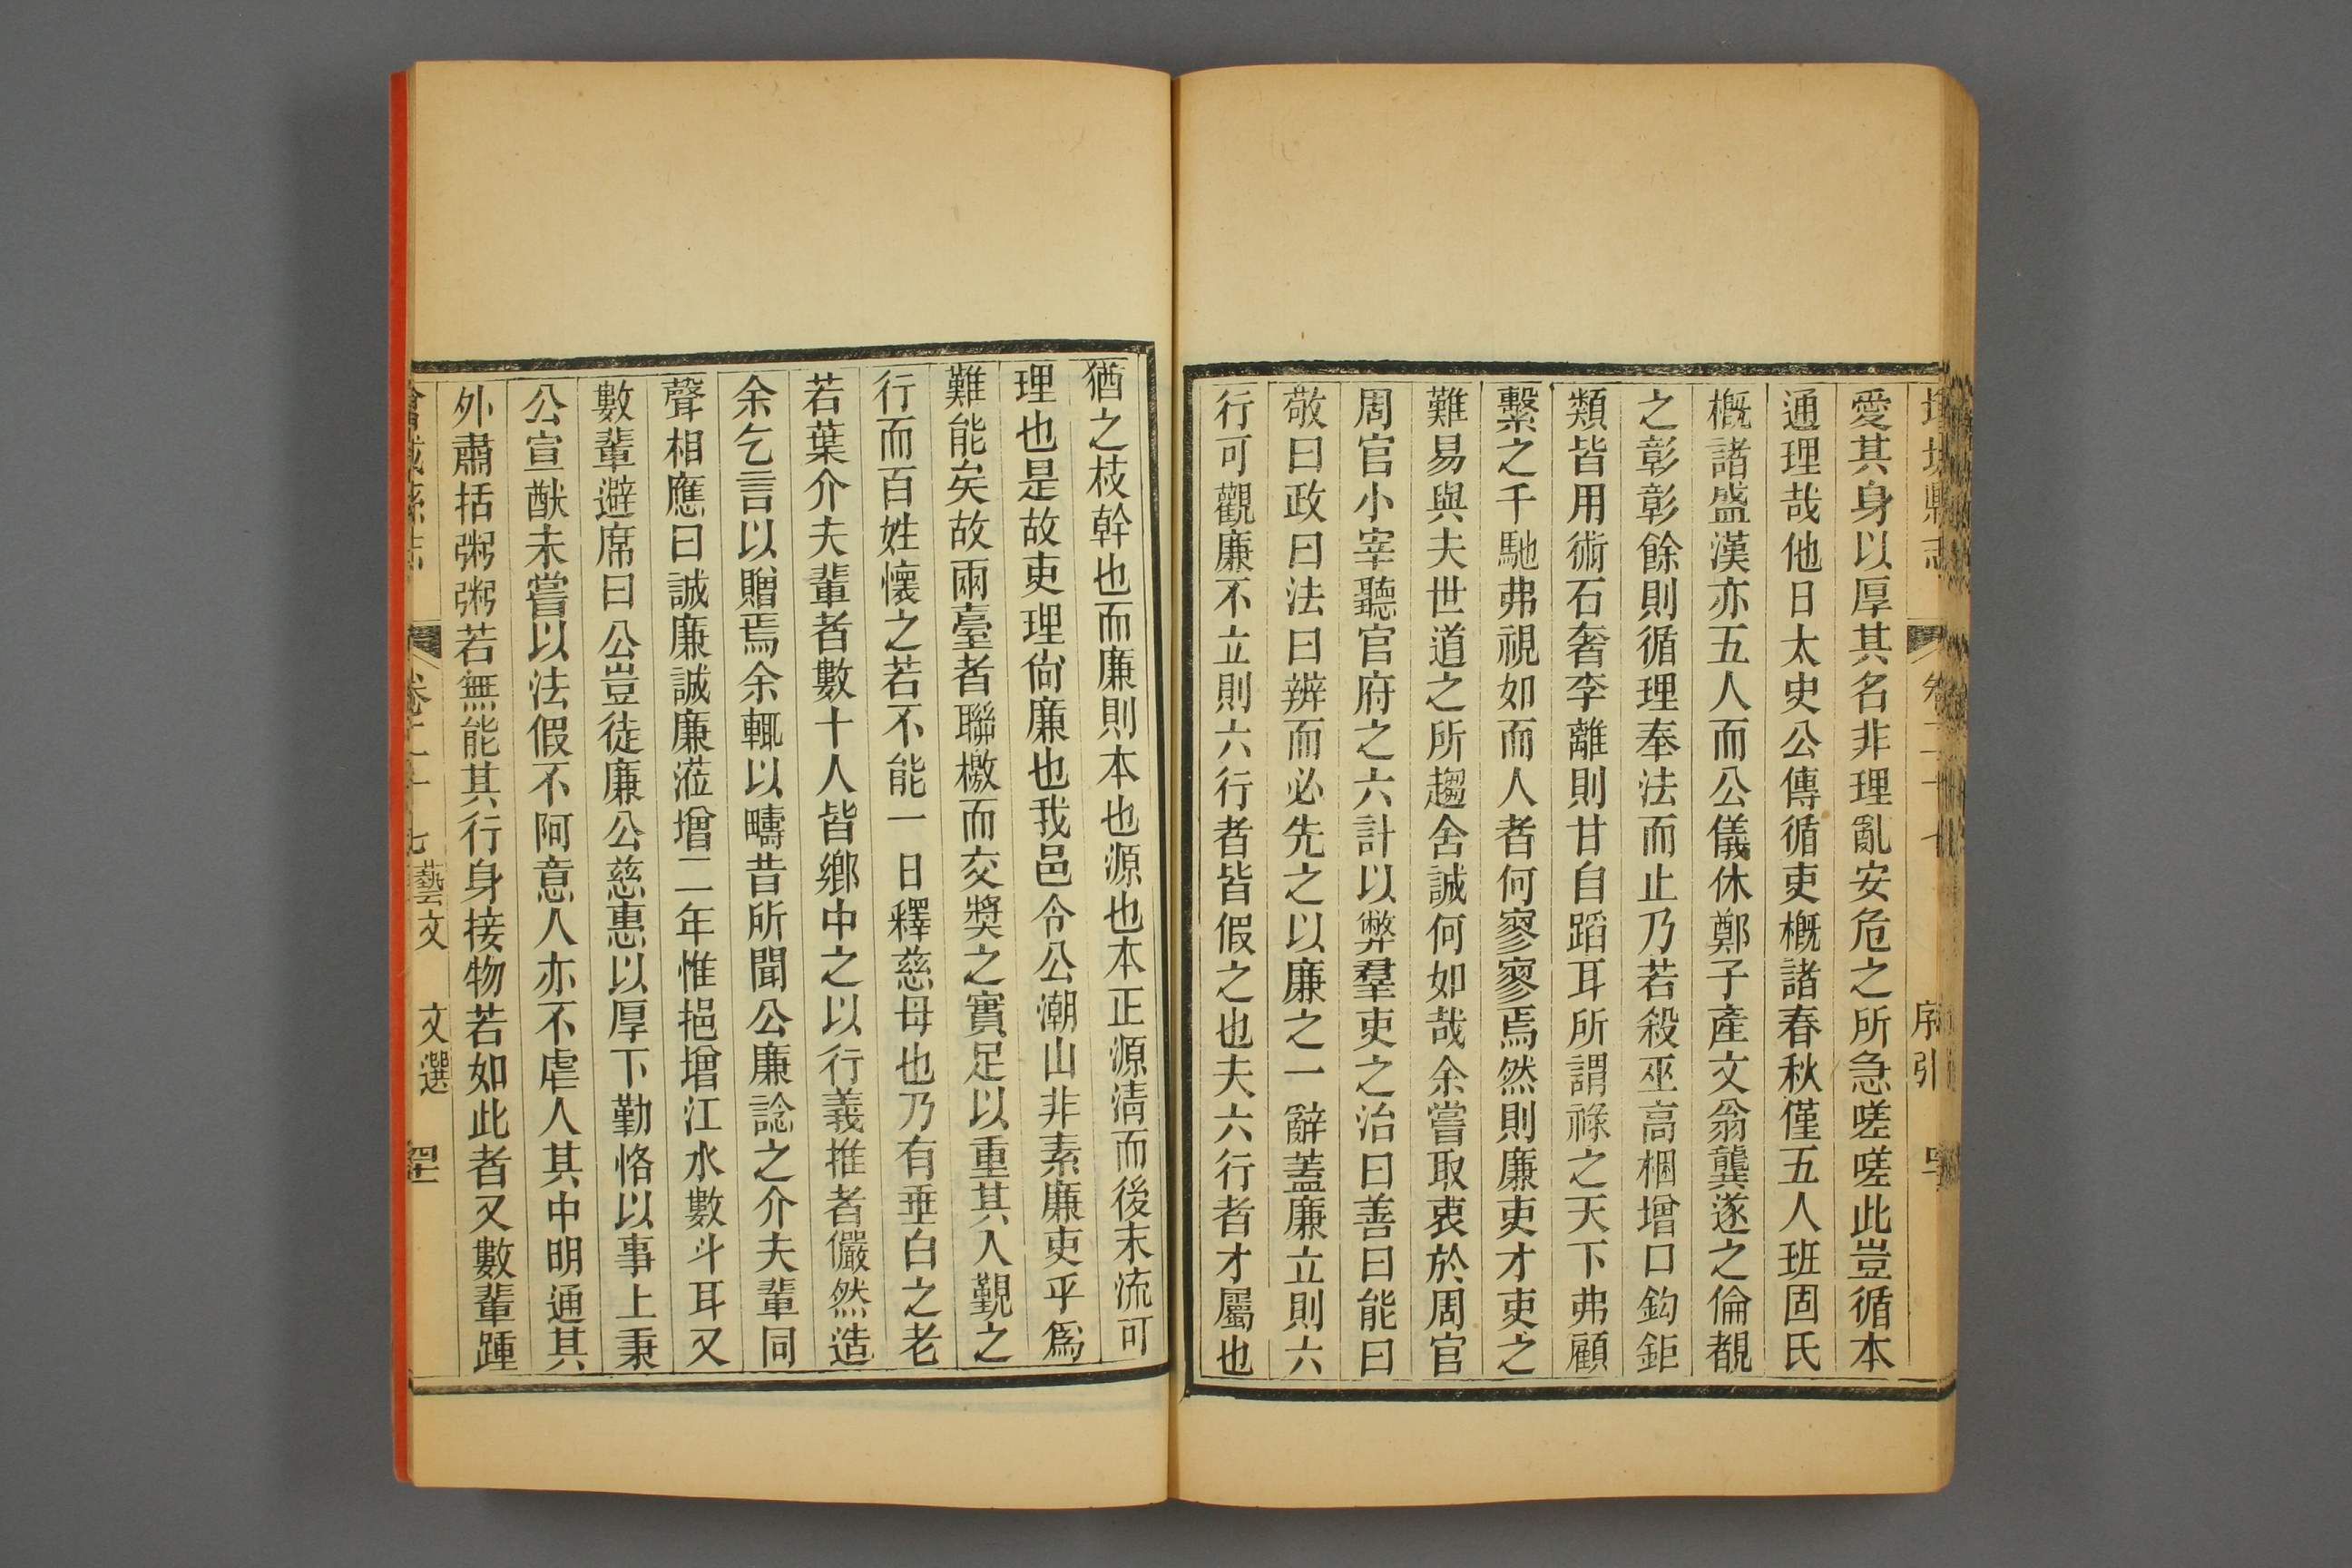 序引
愛其身以厚其名非理亂安危之所急嗟嗟此豈循本
通理哉他日太史公傳循吏概諸春秋僅五人班固氏
概諸盛漢亦五人而公儀休鄭子產文翁龔遂之倫覩
之彰彰餘則循理奉法而止乃若殺巫高梱增口鈎鉅
類皆用術石奢李離則甘自蹈耳所謂祿之天下弗顧
繫之千馳弗視如而人者何寥寥焉然則廉吏才吏之
難易與夫世道之所趨舍誠何如哉余嘗取衷於周官
周官小宰聽官府之六計以弊羣吏之治曰善曰能曰
敬曰政曰法曰辨而必先之以廉之一辭蓋廉立則六
行可觀廉不立則六行者皆假之也夫六行者才屬也
猶之枝幹也而廉則本也源也本正源清而後末流可
理也是故吏理尙廉也我邑令公潮山非素廉吏乎爲
難能矣故兩臺者聯檄而交獎之實足以重其入覲之
行而百姓懷之若不能一日釋慈母也乃有垂白之老
若葉介夫輩者數十人皆鄉中之以行義推者儼然造
余乞言以贈焉余輒以疇昔所聞公廉諗之介夫輩同
聲相應曰誠廉誠廉蒞增二年惟挹增江水數斗耳又
數輩避席曰公豈徒廉公慈惠以厚下勤恪以事上秉
公宣猷未嘗以法假不阿意人亦不虐人其中明通其
外肅括粥粥若無能其行身接物若如此者又數輩踵
卷二十七 藝文 文選